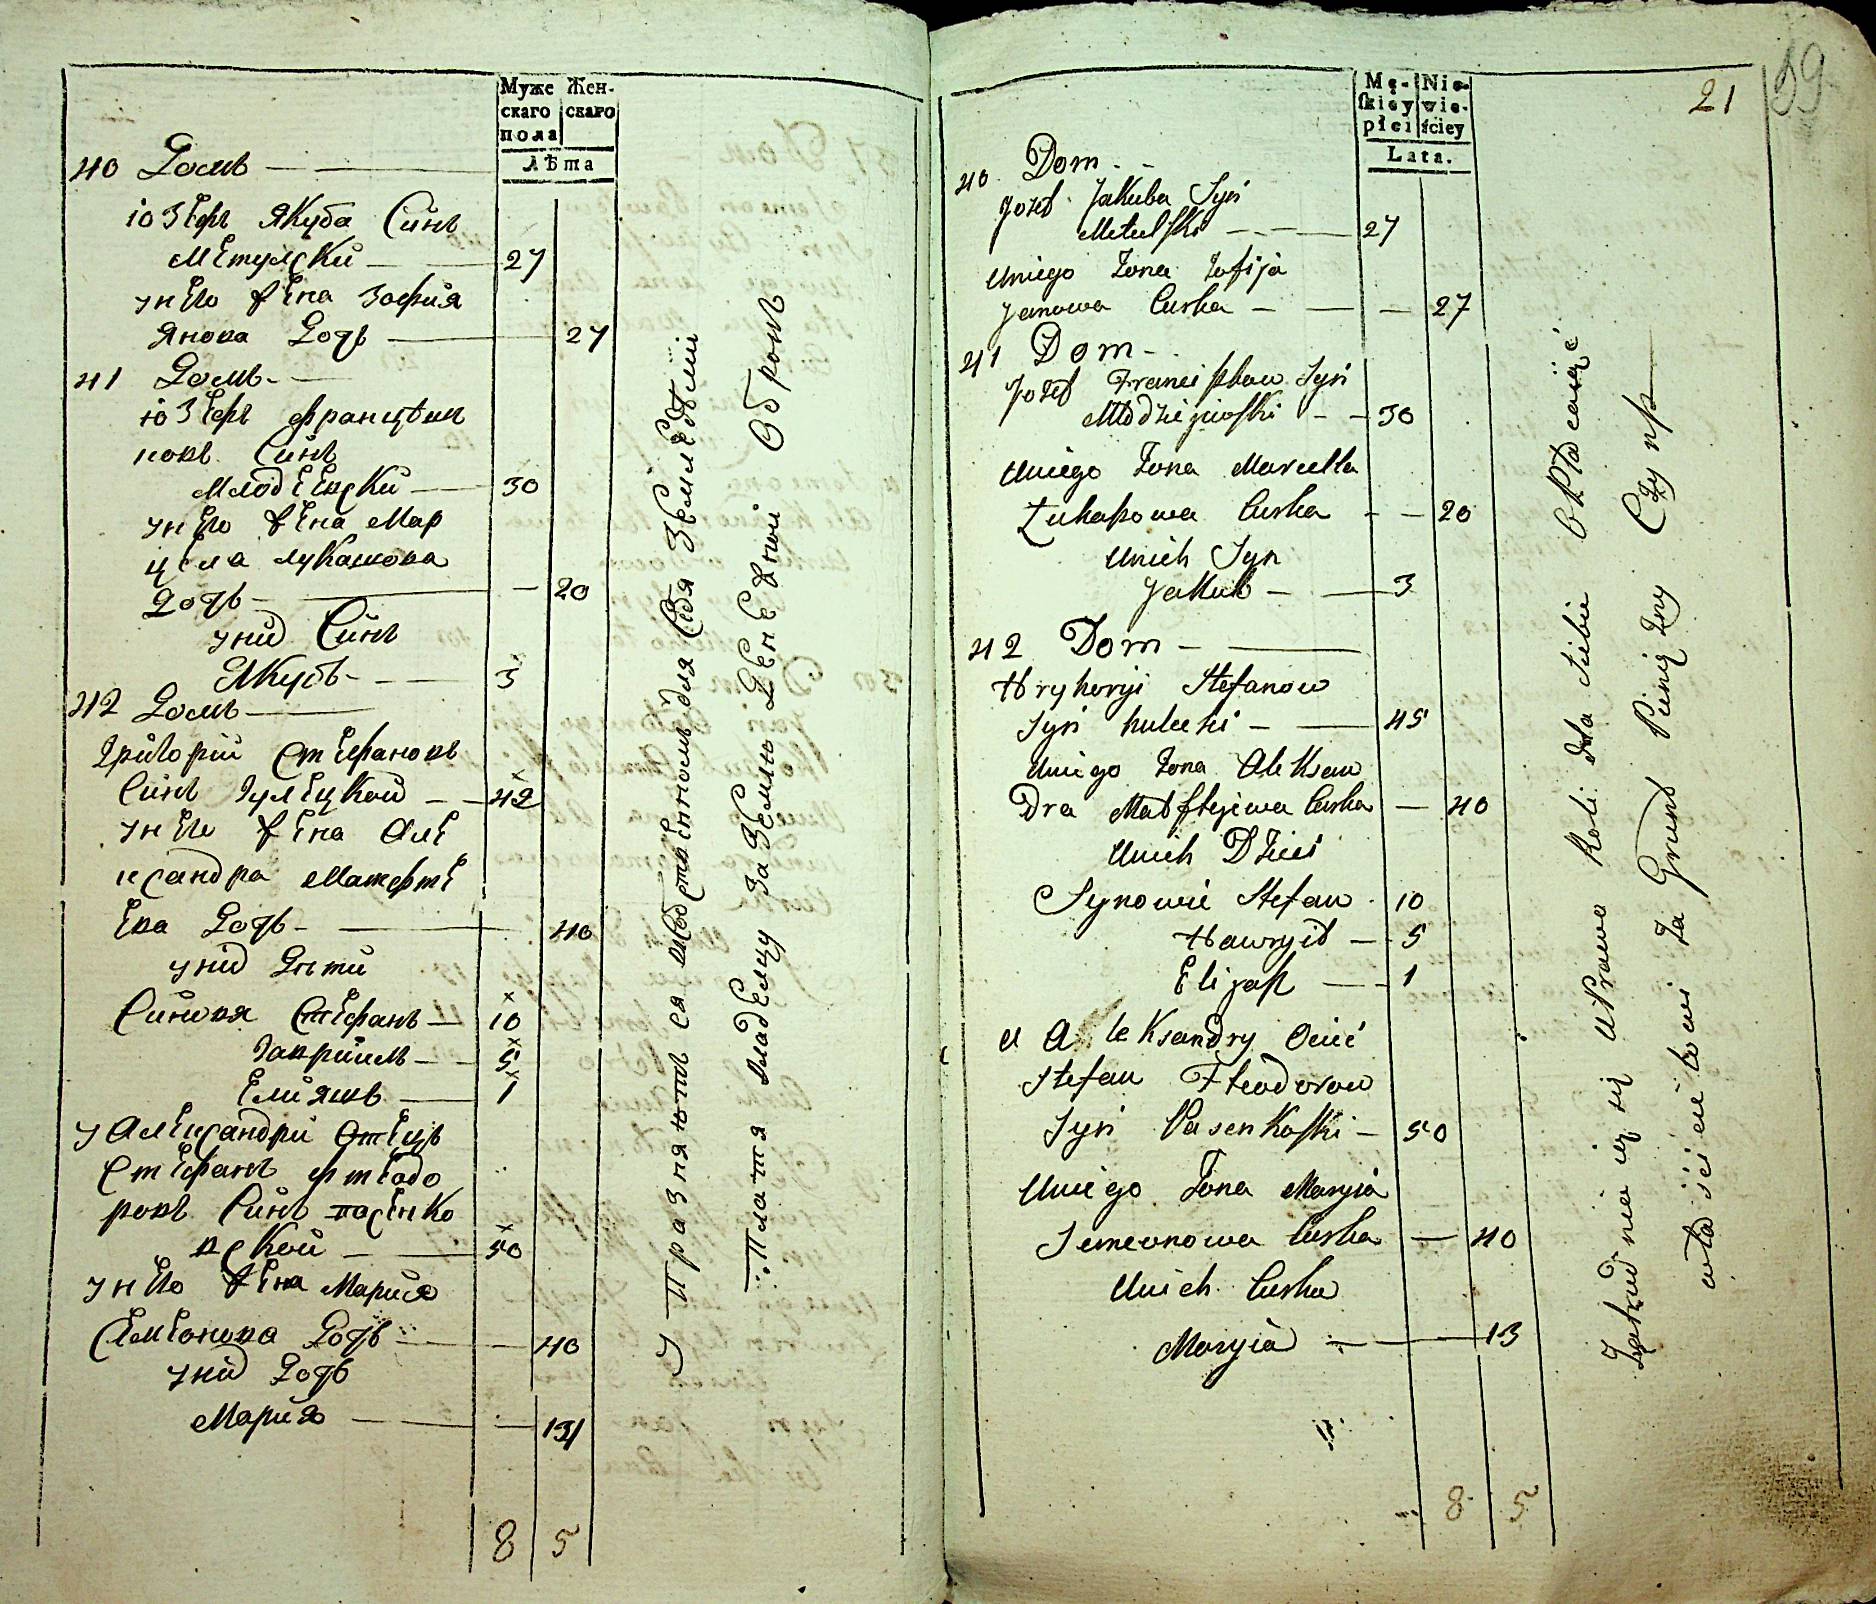 Муже Жен-
скаго скаго
пола
Лѣта
40 Домъ
іозефъ Якуба Синъ
Метулски 27
унего жена Зофия
Янова Дочь 27
41 Домъ
іозефъ францѣшковъ Синъ
Млодзеевски 30
унего жена Мар
цела лукашова
Дочь 20
уних Синъ
Якубъ 3
42 Домъ
Григорій Стефановъ
Синъ Гулецкой 42
унего жена Але
ксандра Матфте
ева Дочь 40
уних Дѣти
Синовя Стефанъ 10
Гавриилъ 5
Елияшъ 1
у Александри Отецъ
Стефанъ фтеодо
ровъ Синъ пасенко
вской 50
унего жена Мария
Семіонова Дочь 40
уних Дочь
Мария 13
8 5
Упразняютъ ся для Себя Землѣдѣлій
Платя владелцу За Землю Денежной Оброкъ
21
Mę- Nie-
skiey wie-
płci ściey
Lata.
40 Dom
Jozef Jakuba Syn
Metulski 27
Uniego Żona Zofija
Janowa Curka 27
41 Dom
Jozef Franciszkow Syn
Młodziejewski 30
Uniego Żona Marcella
Łukaszowa Curka 20
Unich Syn
Jakub 3
42 Dom
Hryhoryi Stefanow
Syn hulecki 45
Uniego Żona Aleksan
Dra Matftejiwa Curka 40
Unich Dzieci
Synowie Stefan 10
Hawryił 5
Elijasz 1
U Aleksandry Ociec
Stefan Fteodorow
Syn Pasenkoski 50
Uniego Żona Maryia
Semeonowa Curka 40
Unich Curka
Maryia 13
8 5
Zatrudnia ią się uPrawa Roli dla Siebie OPłacaiąc
właścicielowi Za Grunt Pieniężny Czynsz